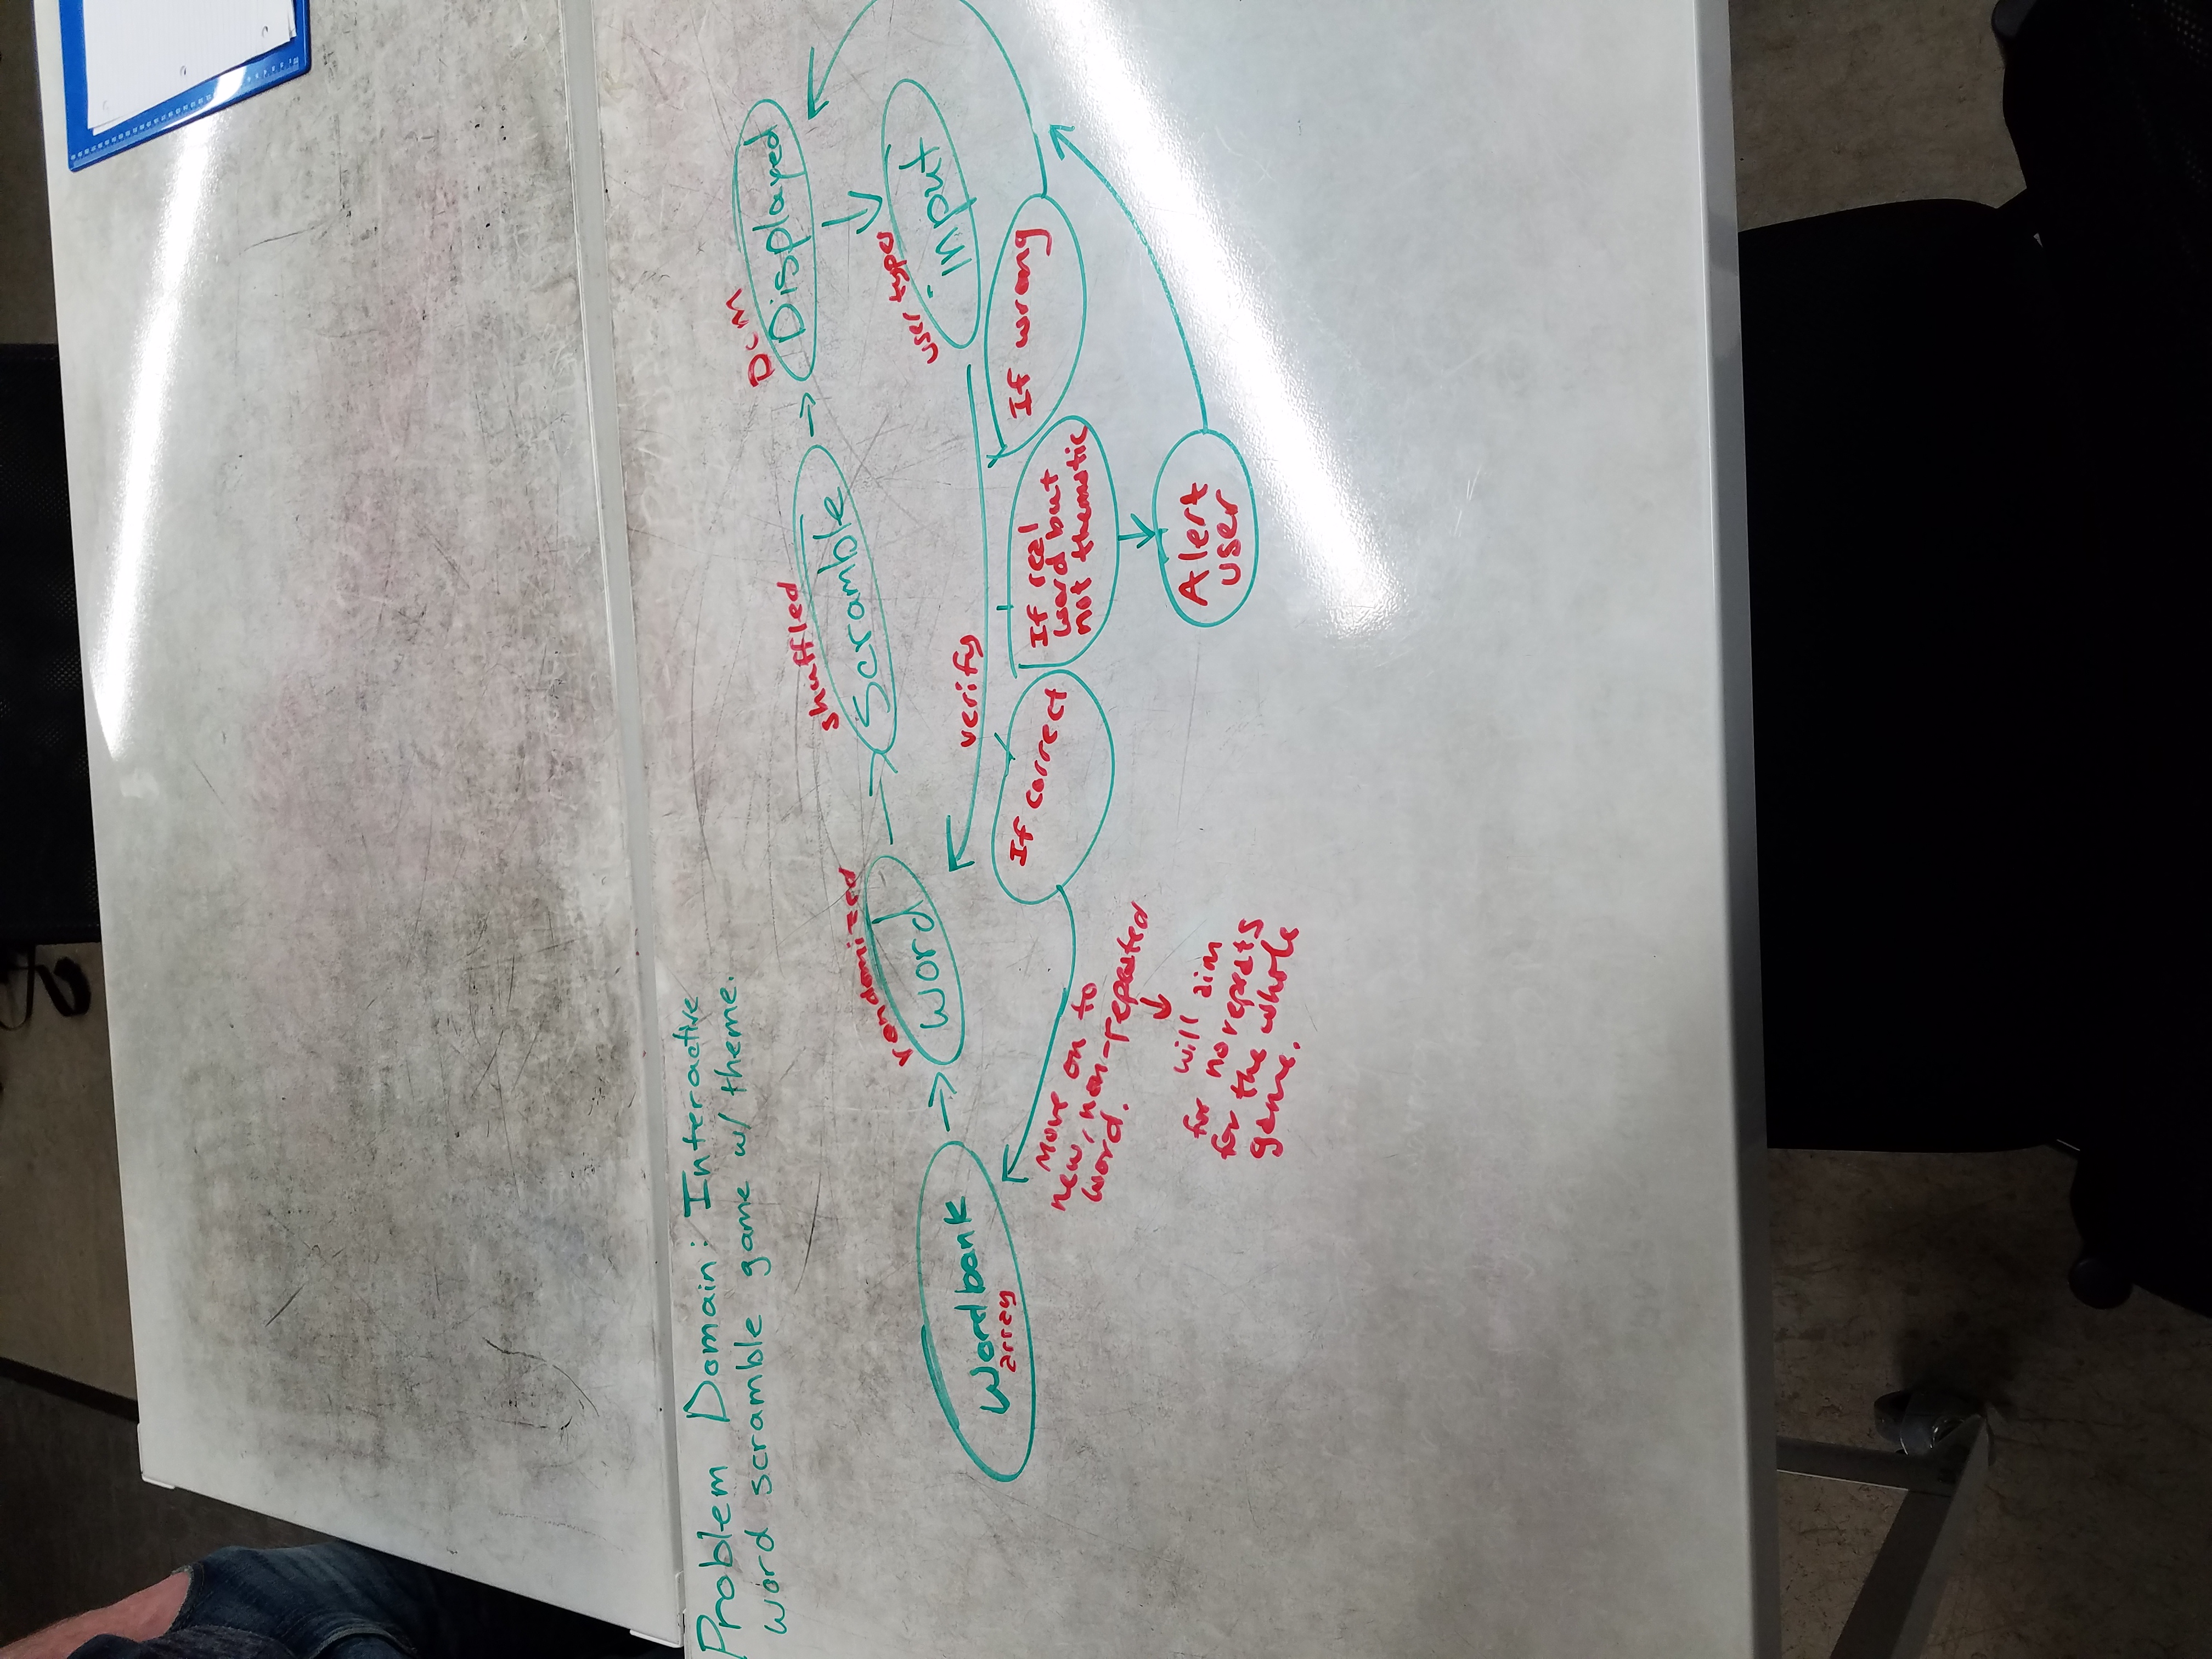 Problem Domain: Interactive
word scramble game w/ theme.
DOM
Displayed
shuffled
Scramble
randomized
word
user types
input
Wordbank
array
verify
If correct
If real
word but
not thematic
If wrong
Move on to
new, non-repeated
word.
will aim
for no repeats
for the whole
game.
Alert
user